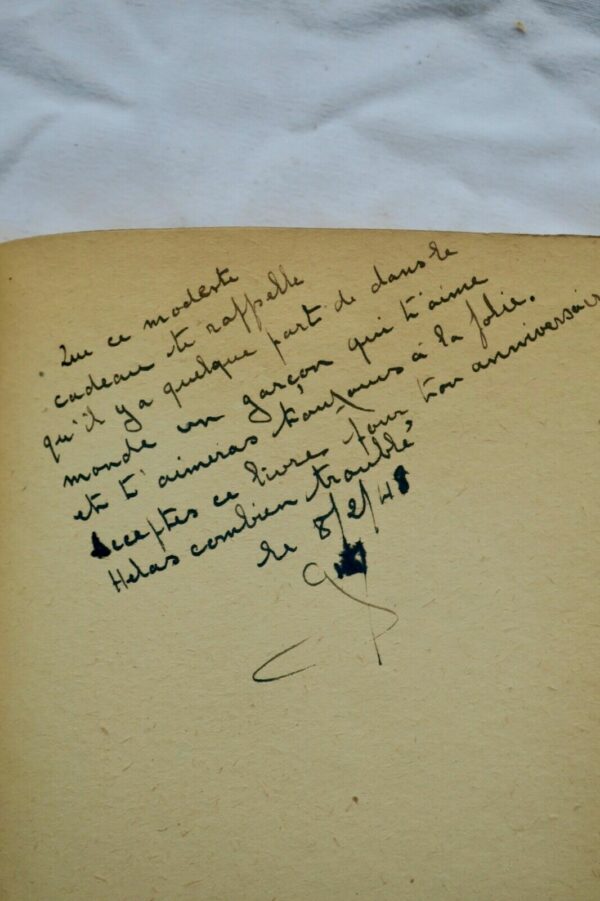 Que ce modeste
cadeau te rappelle
qu'il y a quelque part de dans le
monde un garçon qui t'aime
et t'aimeras toujours à la folie.
Acceptes ce livre pour ton anniversaire
Helas combien troublé
le 8/2/48